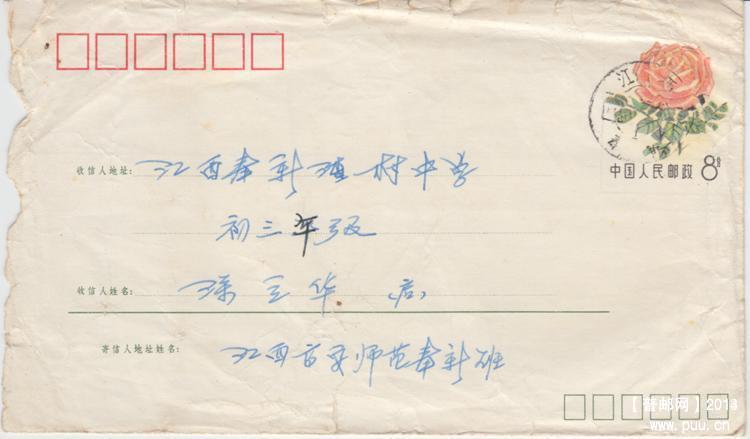 江
中国人民邮政 8分
收信人地址: 江西奉新澡村中学
初三年级
收信人姓名: 三华 启
寄信人地址姓名: 江西宜春师范奉新班
【普邮网】2013
www.puu.cn